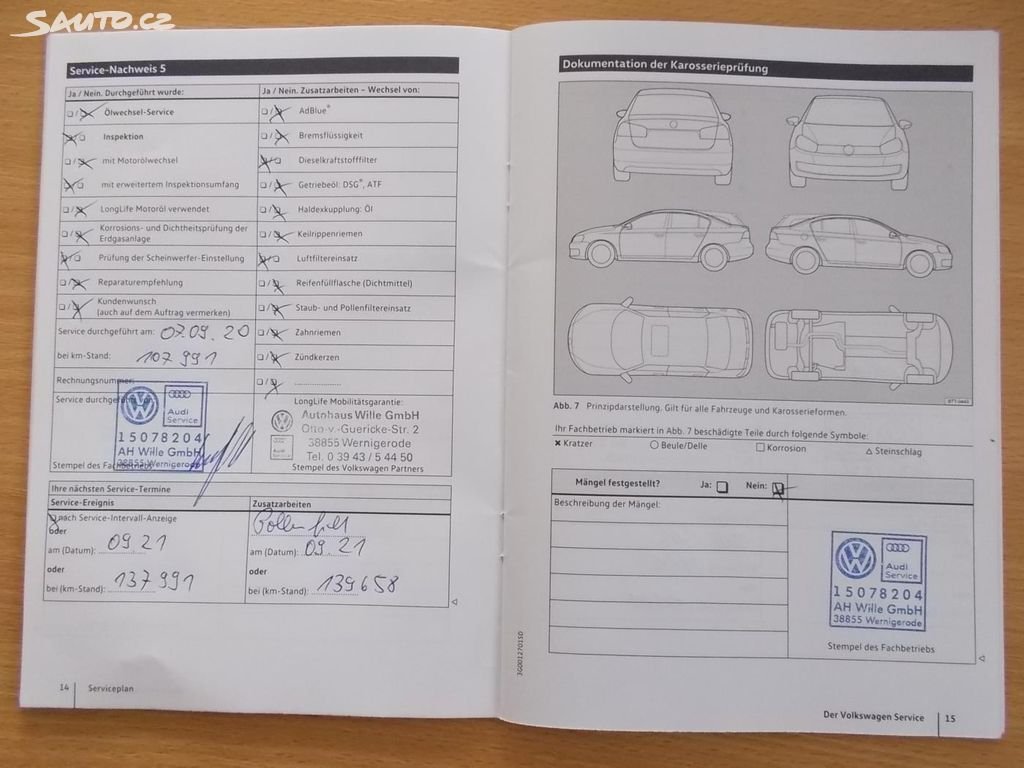 SAUTO.CZ
Service-Nachweis 5
Ja / Nein. Durchgeführt wurde:
Ölwechsel-Service
Inspektion
mit Motorölwechsel
mit erweitertem Inspektionsumfang
LongLife Motoröl verwendet
Korrosions- und Dichtheitsprüfung der
Erdgasanlage
Prüfung der Scheinwerfer-Einstellung
Reparaturempfehlung
Kundenwunsch
(auch auf dem Auftrag vermerken)
Service durchgeführt am: 07.09.20
bei km-Stand: 107 991
Rechnungsnummer:
Service durchgeführt von:
Audi
Service
15078204
AH Wille GmbH
38855 Wernigerode
Stempel des Fachbetriebs
Ja / Nein. Zusatzarbeiten – Wechsel von:
AdBlue®
Bremsflüssigkeit
Dieselkraftstofffilter
Getriebeöl: DSG®, ATF
Haldexkupplung: Öl
Keilrippenriemen
Luftfiltereinsatz
Reifenfüllflasche (Dichtmittel)
Staub- und Pollenfiltereinsatz
Zahnriemen
Zündkerzen
LongLife Mobilitätsgarantie:
Autohaus Wille GmbH
Otto-v.-Guericke-Str. 2
38855 Wernigerode
Tel. 0 39 43 / 5 44 50
Stempel des Volkswagen Partners
Ihre nächsten Service-Termine
Service-Ereignis
nach Service-Intervall-Anzeige
oder
am (Datum): 09.21
oder
bei (km-Stand): 137 991
Zusatzarbeiten
am (Datum): 09.21
oder
bei (km-Stand): 139 658
14 Serviceplan
Dokumentation der Karosserieprüfung
Abb. 7 Prinzipdarstellung. Gilt für alle Fahrzeuge und Karosserieformen.
Ihr Fachbetrieb markiert in Abb. 7 beschädigte Teile durch folgende Symbole:
Kratzer
Beule/Delle
Korrosion
Steinschlag
Mängel festgestellt? Ja: Nein:
Beschreibung der Mängel:
Audi
Service
15078204
AH Wille GmbH
38855 Wernigerode
Stempel des Fachbetriebs
3G0012701SD
Der Volkswagen Service 15